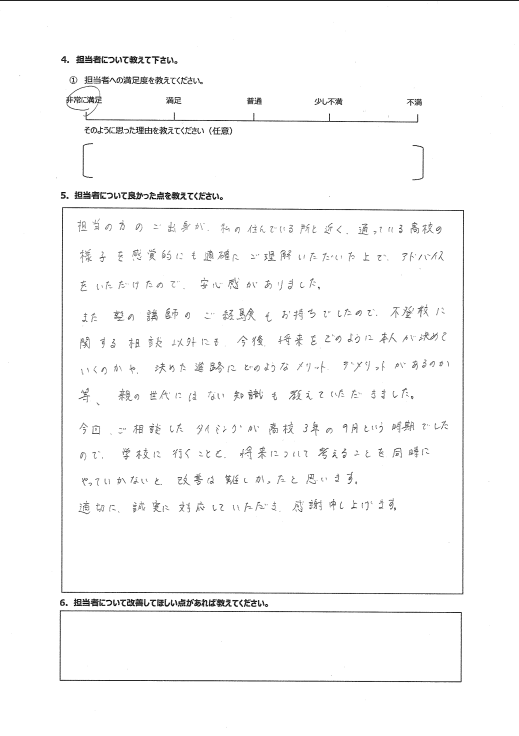 4．担当者について教えて下さい。
① 担当者への満足度を教えてください。
非常に満足 満足 普通 少し不満 不満
そのように思った理由を教えてください（任意）
5．担当者について良かった点を教えてください。
担当の方のご出身が、私の住んでいる所と近く、通っている高校の
様子を感覚的にも適確にご理解いただいた上で、アドバイス
をいただけたので、安心感がありました。
また 塾の講師のご経験もお持ちでしたので、不登校に
関する相談以外にも、今後、将来をどのように本人が決めて
いくのかや、決めた進路にどのようなメリット、デメリットがあるのか
等、親の世代にはない知識も教えていただきました。
今回、ご相談したタイミングが高校3年の9月という時期でした
ので、学校に行くことと、将来について考えることを同時に
やっていかないと、改善は難しかったと思います。
適切に、誠実に対応していただき、感謝申し上げます。
6．担当者について改善してほしい点があれば教えてください。